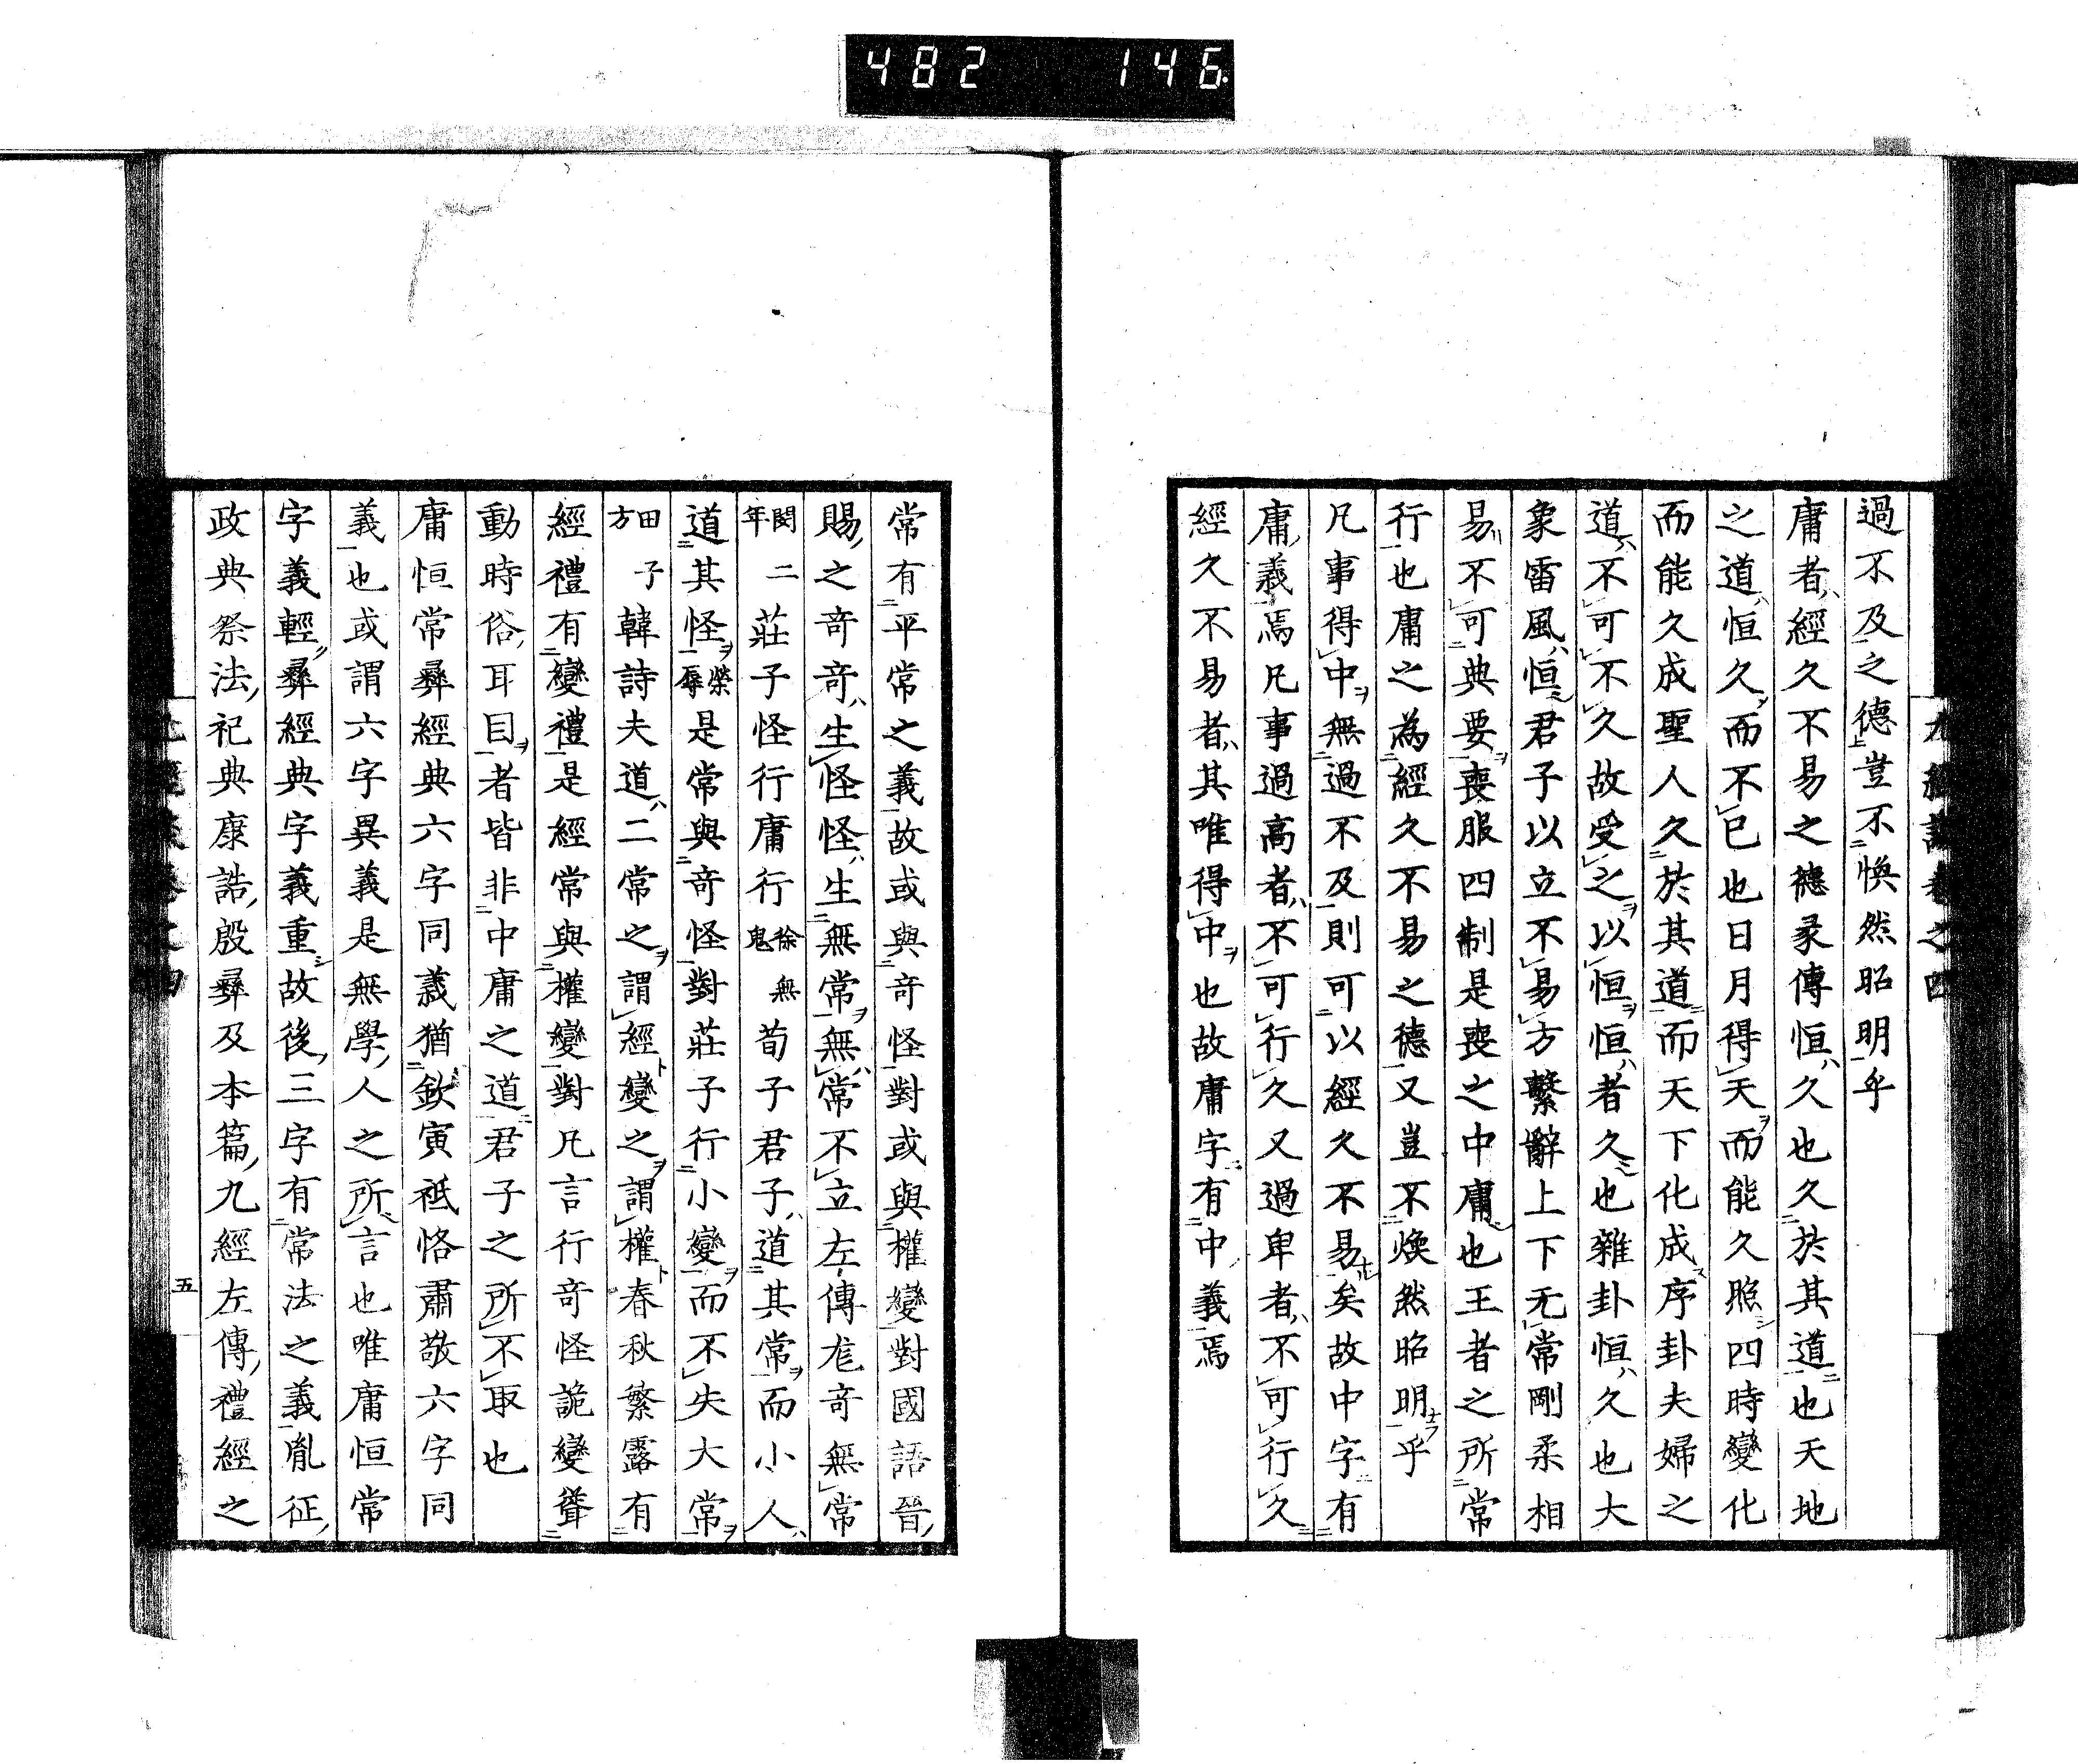 482 146
過不及之德豈不煥然昭明乎
庸者經久不易之德彖傳恒久也久於其道也天地
之道恒久而不已也日月得天而能久照四時變化
而能久成聖人久於其道而天下化成序卦夫婦之
道不可不久故受之以恒恒者久也雜卦恒久也大
象雷風恒君子以立不易方繫辭上下无常剛柔相
易不可典要喪服四制是喪之中庸也王者之所常
行也庸之為經久不易之德又豈不煥然昭明乎
凡事得中無過不及則可以經久不易矣故中字有
庸義焉凡事過高者不可行久又過卑者不可行久
經久不易者其唯得中也故庸字有中義焉
常有平常之義故或與奇怪對或與權變對國語晉
賜之奇奇生怪怪生無常無常不立左傳尨奇無常
閔二年莊子怪行庸行徐無鬼荀子君子道其常而小人
道其怪榮辱是常與奇怪對莊子行小變而不失大常
田子方韓詩夫道二常之謂經變之謂權春秋繁露有
經禮有變禮是經常與權變對凡言行奇怪詭變聳
動時俗耳目者皆非中庸之道君子之所不取也
庸恒常彝經典六字同義猶欽寅祗恪肅敬六字同
義也或謂六字異義是無學人之所言也唯庸恒常
字義輕彝經典字義重故後三字有常法之義胤征
政典祭法祀典康誥殷彝及本篇九經左傳禮經之
五